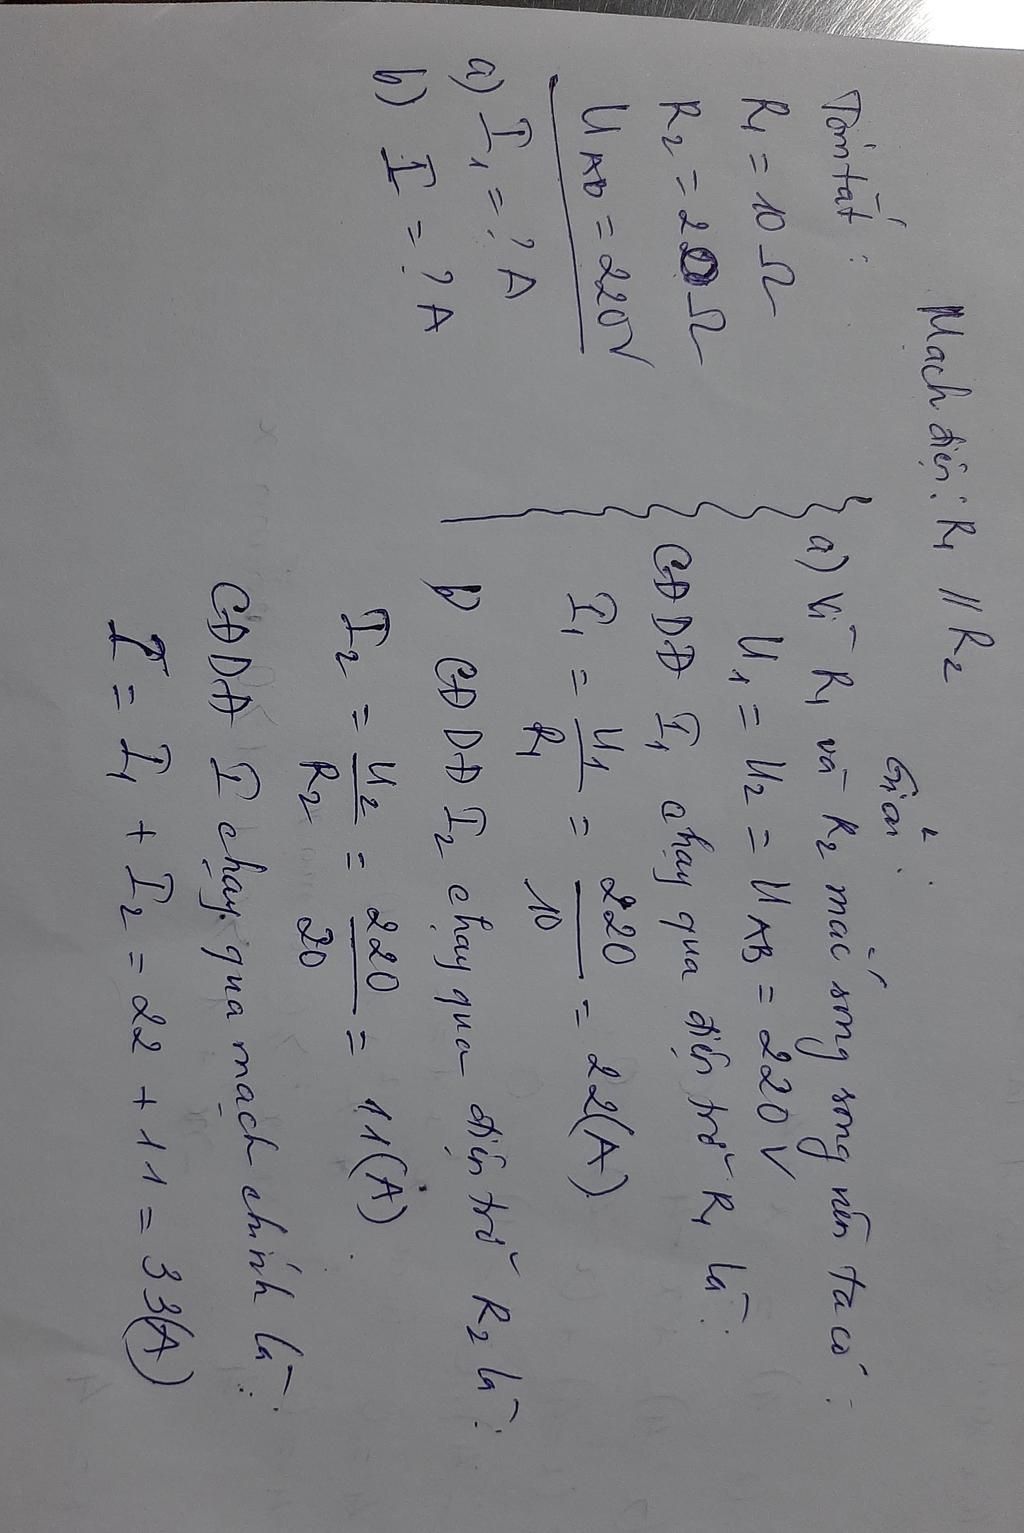 Mạch điện: R1 // R2
Tóm tắt:
R1 = 10 Ω
R2 = 20 Ω
UAB = 220V
a) I1 = ? A
b) I = ? A
Giải:
a) Vì R1 và R2 mắc song song nên ta có:
U1 = U2 = UAB = 220V
CĐDĐ I1 chạy qua điện trở R1 là:
I1 = U1/R1 = 220/10 = 22(A)
b) CĐDĐ I2 chạy qua điện trở R2 là:
I2 = U2/R2 = 220/20 = 11(A).
CĐDĐ I chạy qua mạch chính là:
I = I1 + I2 = 22 + 11 = 33(A)